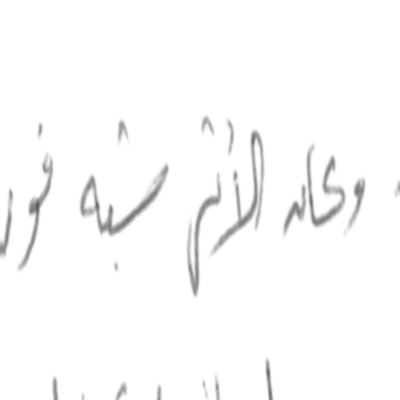 وكان الأثر شبه فور